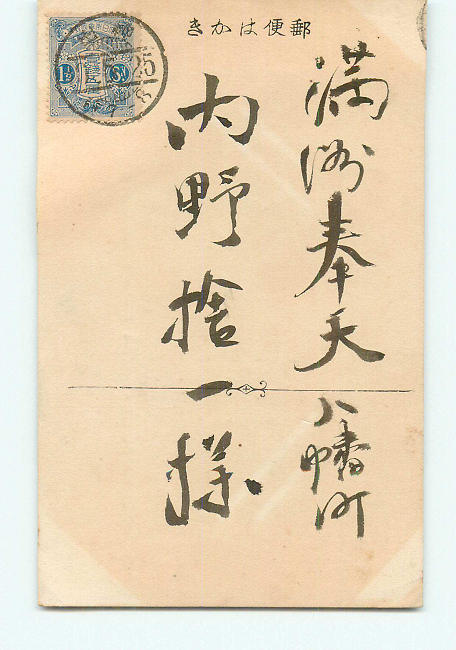 郵便はかき
満洲奉天八幡町
内野捨一様
1½ Sn
25